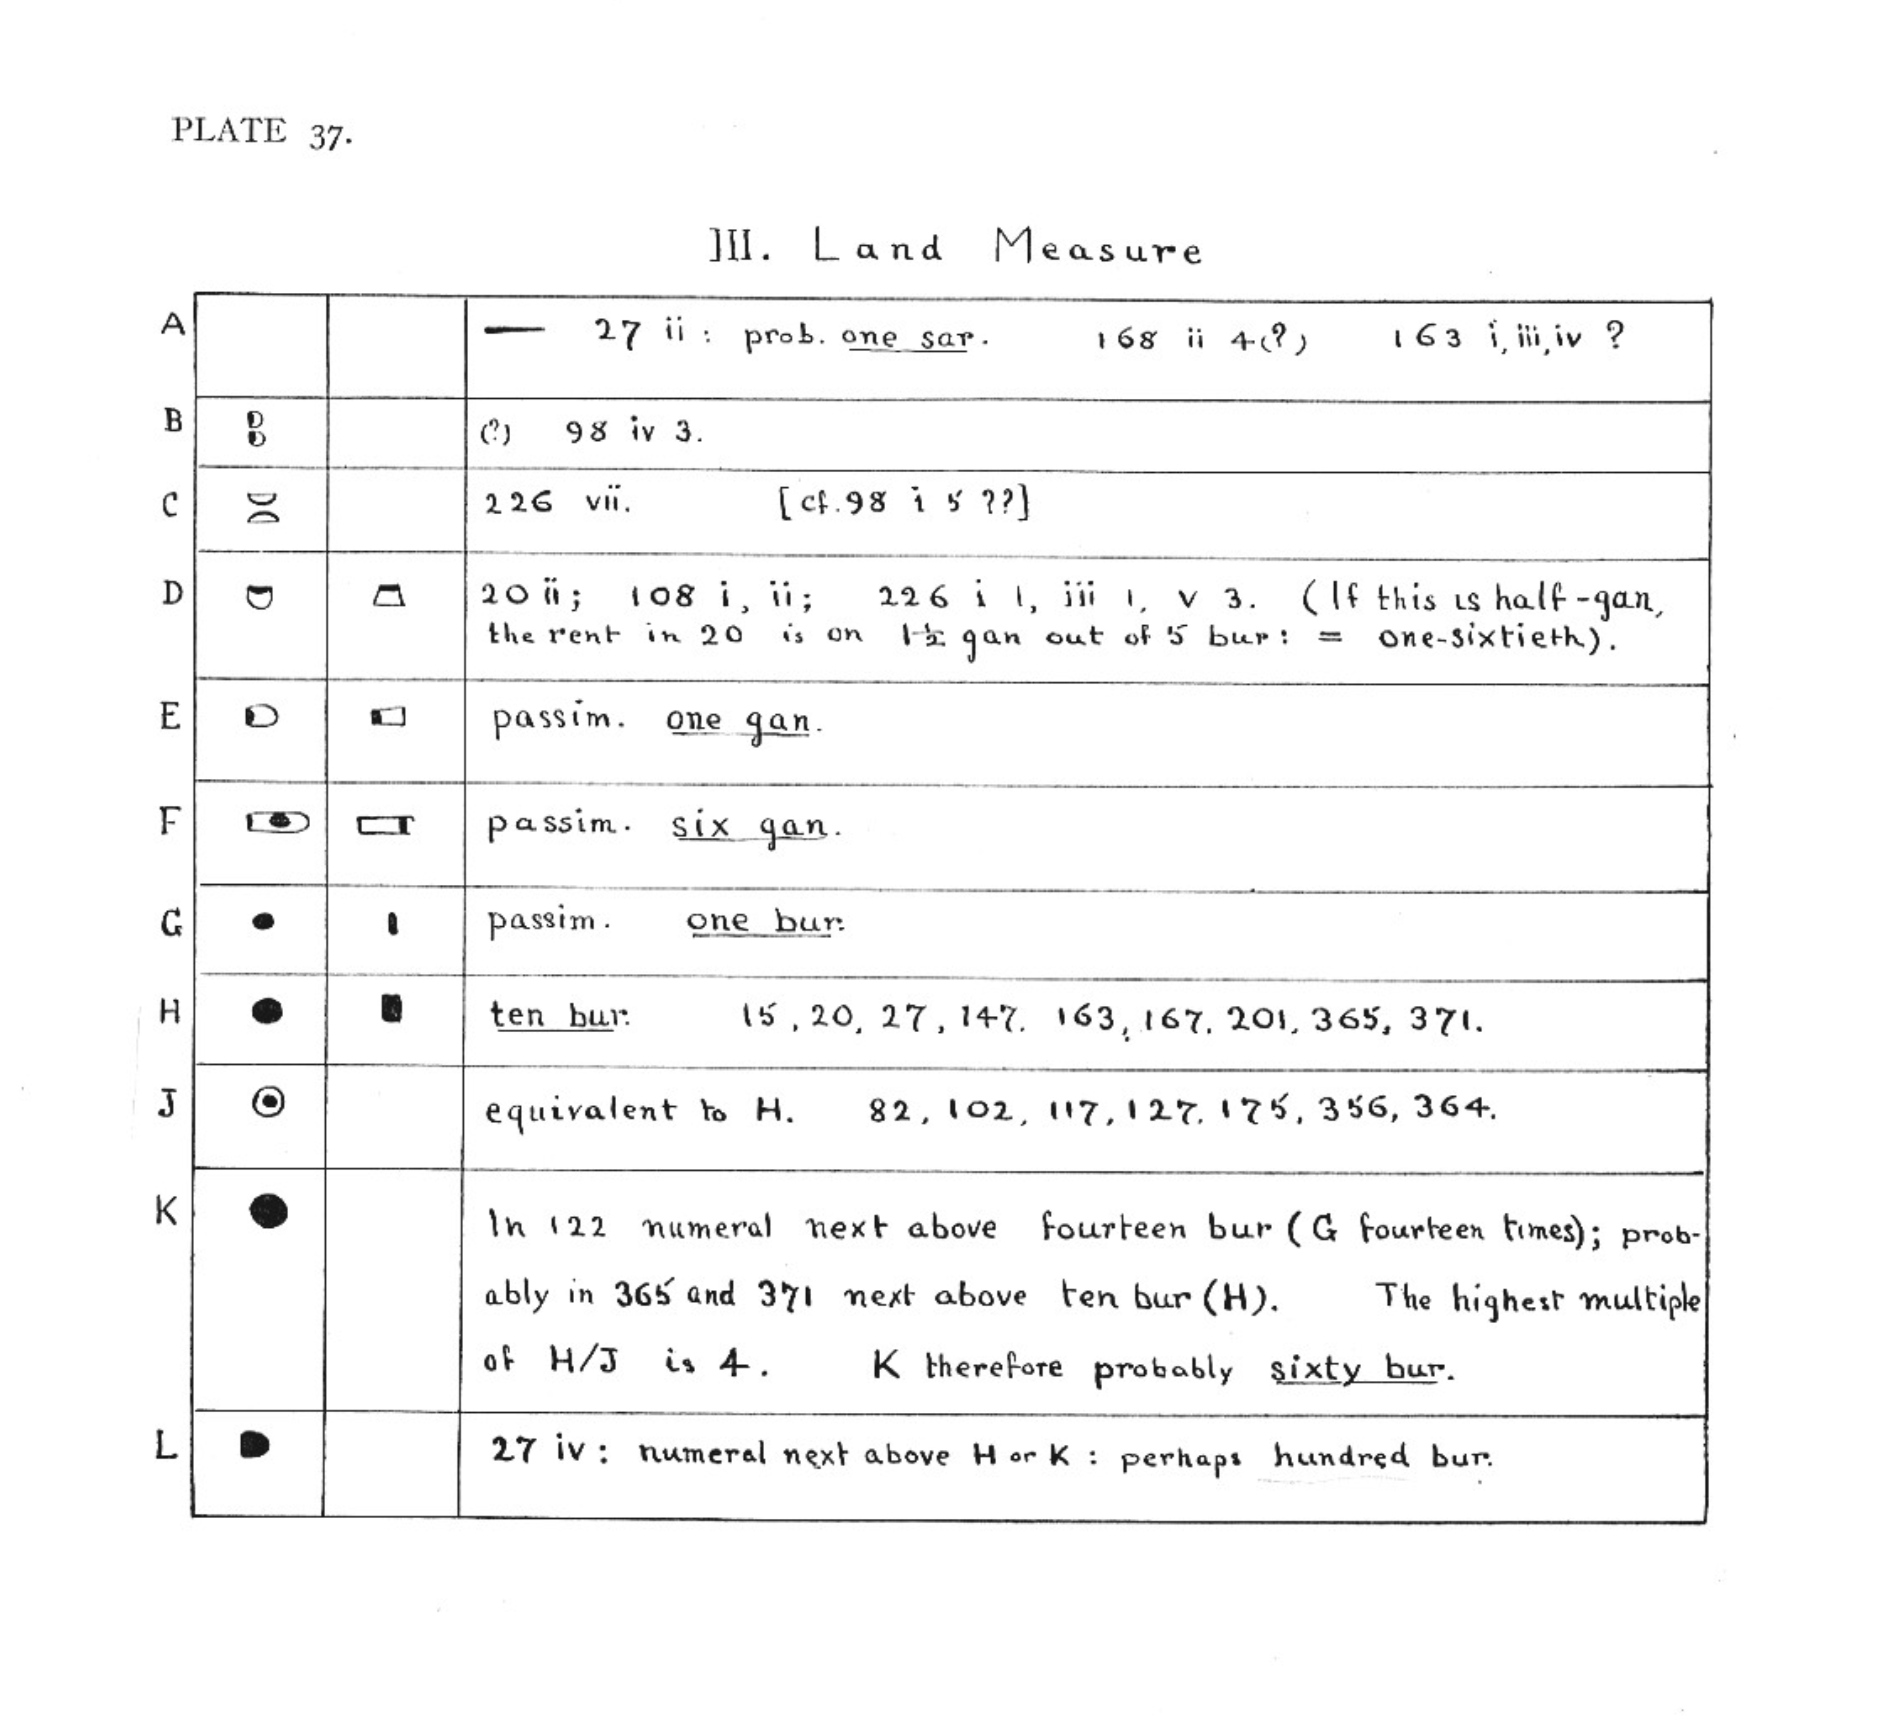 PLATE 37.
III. Land Measure
A — 27 ii : prob. one sar. 168 ii 4(?) 163 i, iii, iv ?
B (?) 98 iv 3.
C 226 vii. [cf. 98 i 5 ??]
D 20 ii; 108 i, ii; 226 i 1, iii 1, v 3. (If this is half-gan,
the rent in 20 is on 1½ gan out of 5 bur: = one-sixtieth).
E passim. one gan.
F passim. six gan.
G passim. one bur.
H ten bur. 15, 20, 27, 147, 163, 167, 201, 365, 371.
J equivalent to H. 82, 102, 117, 127, 175, 356, 364.
K In 122 numeral next above fourteen bur (G fourteen times); prob-
ably in 365 and 371 next above ten bur (H). The highest multiple
of H/J is 4. K therefore probably sixty bur.
L 27 iv : numeral next above H or K : perhaps hundred bur.